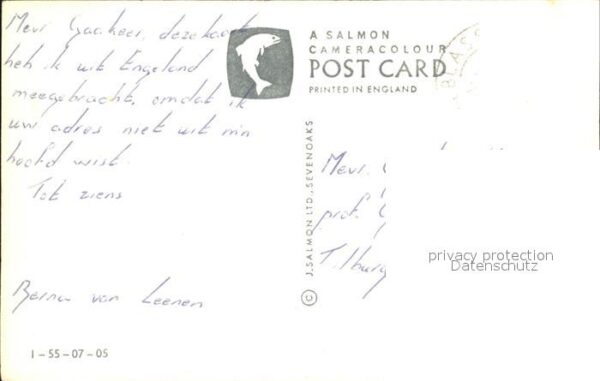 Mevr. Gaakeer, deze kaart
heb ik uit Engeland
meegebracht, omdat ik
uw adres niet uit m'n
hoofd wist.
Tot ziens
van Leenen
1-55-07-05
A SALMON
CAMERACOLOUR
POST CARD
PRINTED IN ENGLAND
© J. SALMON LTD., SEVENOAKS
Mevr.
prof.
Tilburg
privacy protection
Datenschutz